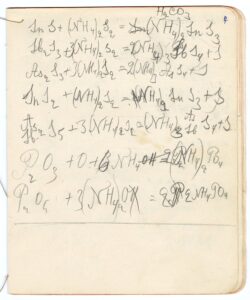 H₂CO₃
SnS + (NH₄)₂S₂ = (NH₄)₂SnS₃
Sb₂S₃ + 3(NH₄)₂S₂ = 2(NH₄)₃SbS₄ + S
As₂S₃ + 3(NH₄)₂S₂ = 2(NH₄)₃AsS₄ + S
SnS₂ + (NH₄)₂S = (NH₄)₂SnS₃
S₅ + 3(NH₄)₂S = (NH₄)₃ S₄
P₂O₃ + O + 6NH₄OH = 2(NH₄)₃PO₄
P₂O₅ + 3(NH₄)₂O =